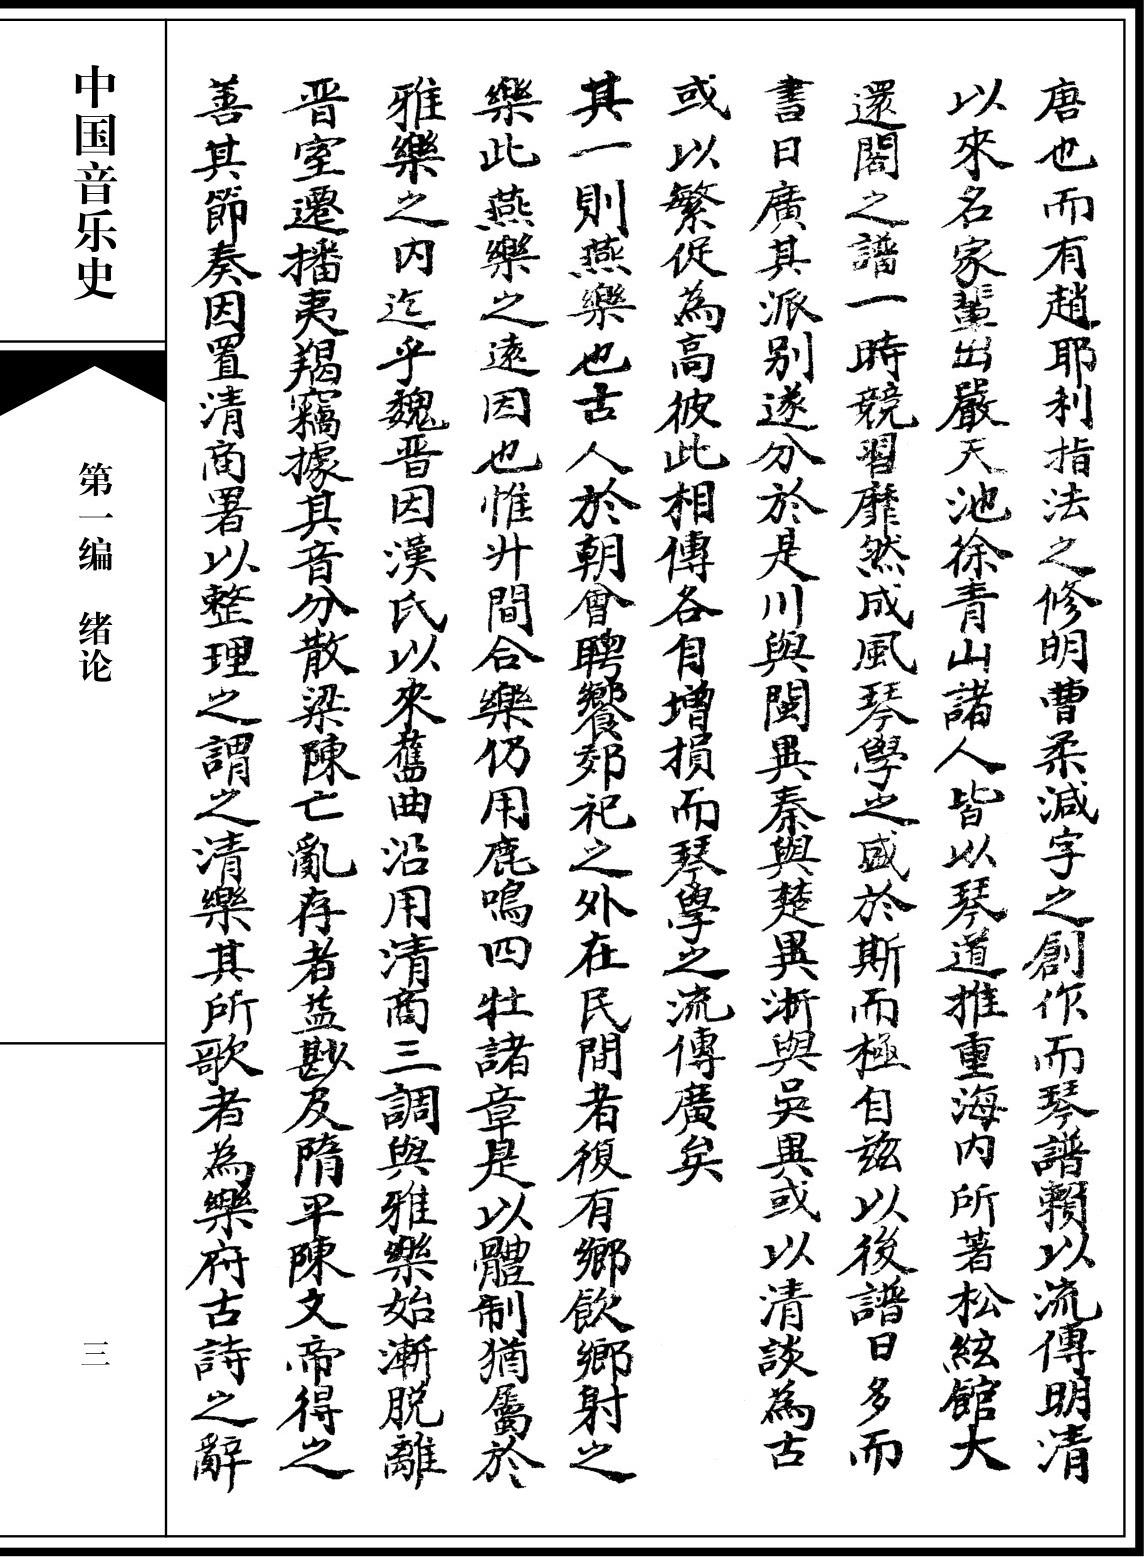 唐也而有趙耶利指法之修明曹柔減字之創作而琴譜賴以流傳明清
以來名家輩出嚴天池徐青山諸人皆以琴道推重海内所著松絃館大
還閣之譜一時競習靡然成風琴學之盛於斯而極自兹以後譜日多而
書日廣其派别遂分於是川與閩異秦與楚異浙與吳異或以清談為古
或以繁促為高彼此相傳各自增損而琴學之流傳廣矣
其一則燕樂也古人於朝會聘饗郊祀之外在民間者復有鄉飲鄉射之
樂此燕樂之遠因也惟廾間合樂仍用鹿鳴四牡諸章是以體制猶屬於
雅樂之内迄乎魏晋因漢氏以來舊曲沿用清商三調與雅樂始漸脱離
晋室遷播夷羯竊據其音分散梁陳亡亂存者益尠及隋平陳文帝得之
善其節奏因置清商署以整理之謂之清樂其所歌者為樂府古詩之辭
中国音乐史
第一编　绪论
三